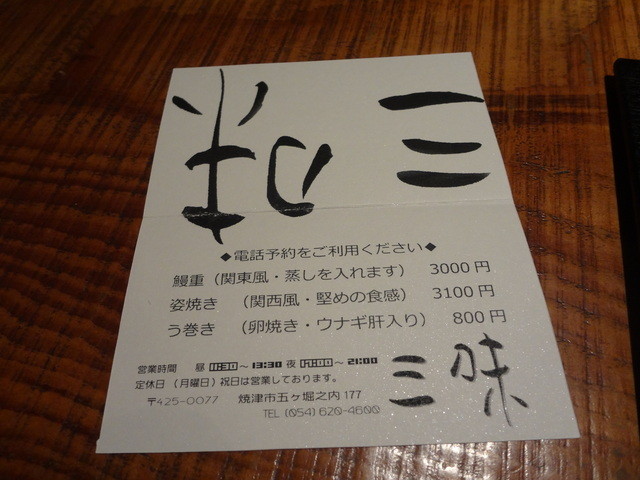 三味
◆電話予約をご利用ください◆
鰻重（関東風・蒸しを入れます） 3000円
姿焼き （関西風・堅めの食感） 3100円
う巻き （卵焼き・ウナギ肝入り） 800円
営業時間 昼 11:30～13:30 夜 17:00～21:00
定休日（月曜日）祝日は営業しております。
〒425-0077 焼津市五ヶ堀之内177
TEL (054) 620-4600
三味